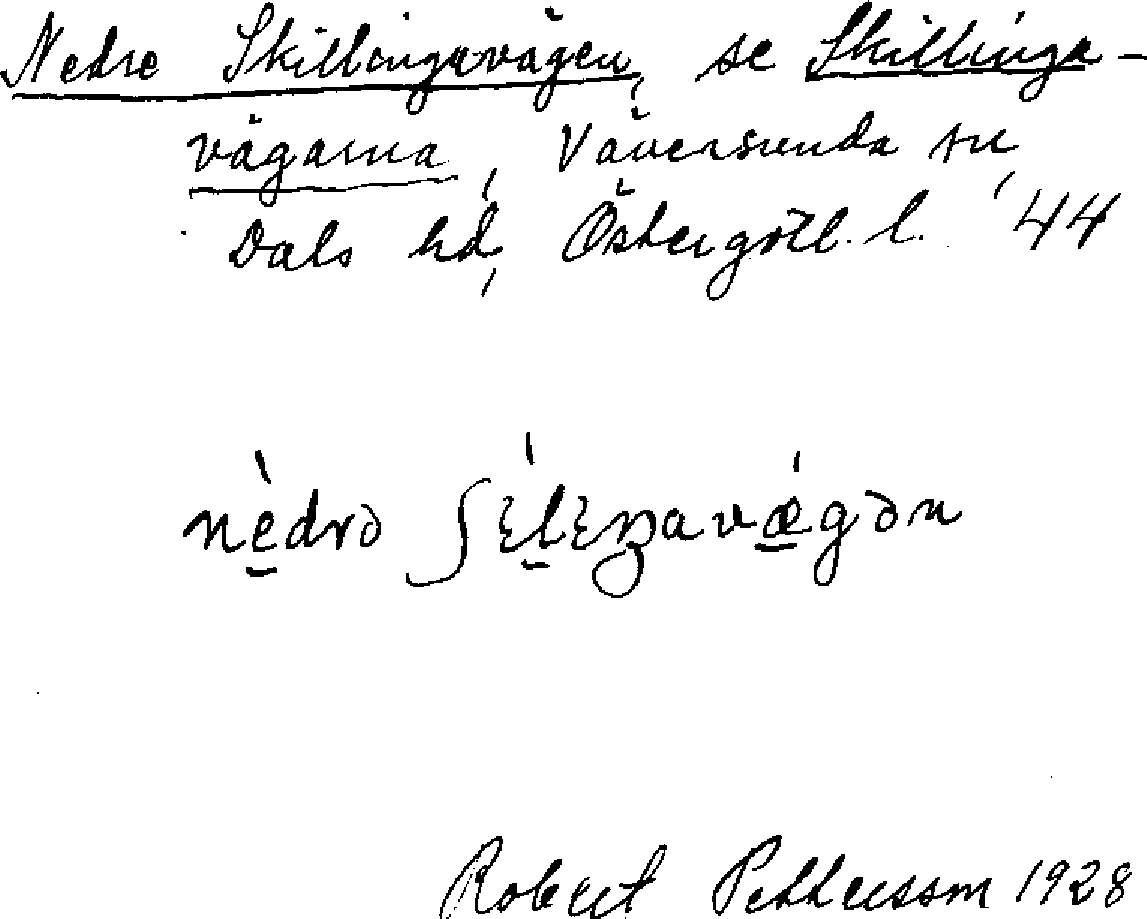 Nedre Skillingavägen, se Skillinga-
vägarna, Väversunda sn,
Dals hd, Östergötl. l. '44
nè̱drə ʃɛ́l̠ɛŋavǽ̱gən
Robert Pettersson 1928